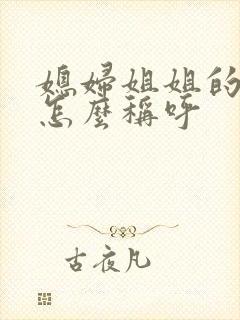 媳婦姐姐的
怎麼稱呼
古夜凡